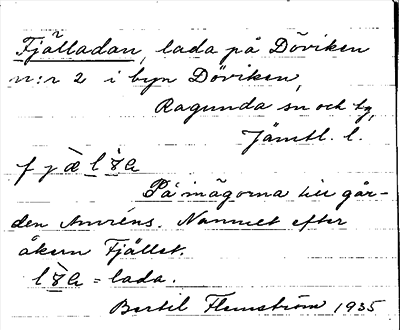 Fjälladan, lada på Döviken
n:r 2 i byn Döviken,
Ragunda sn och tg,
Jämtl. l.
På inägorna till går-
den Anréns. Namnet efter
åkern Fjället.
= lada.
Bertil Flemström 1935